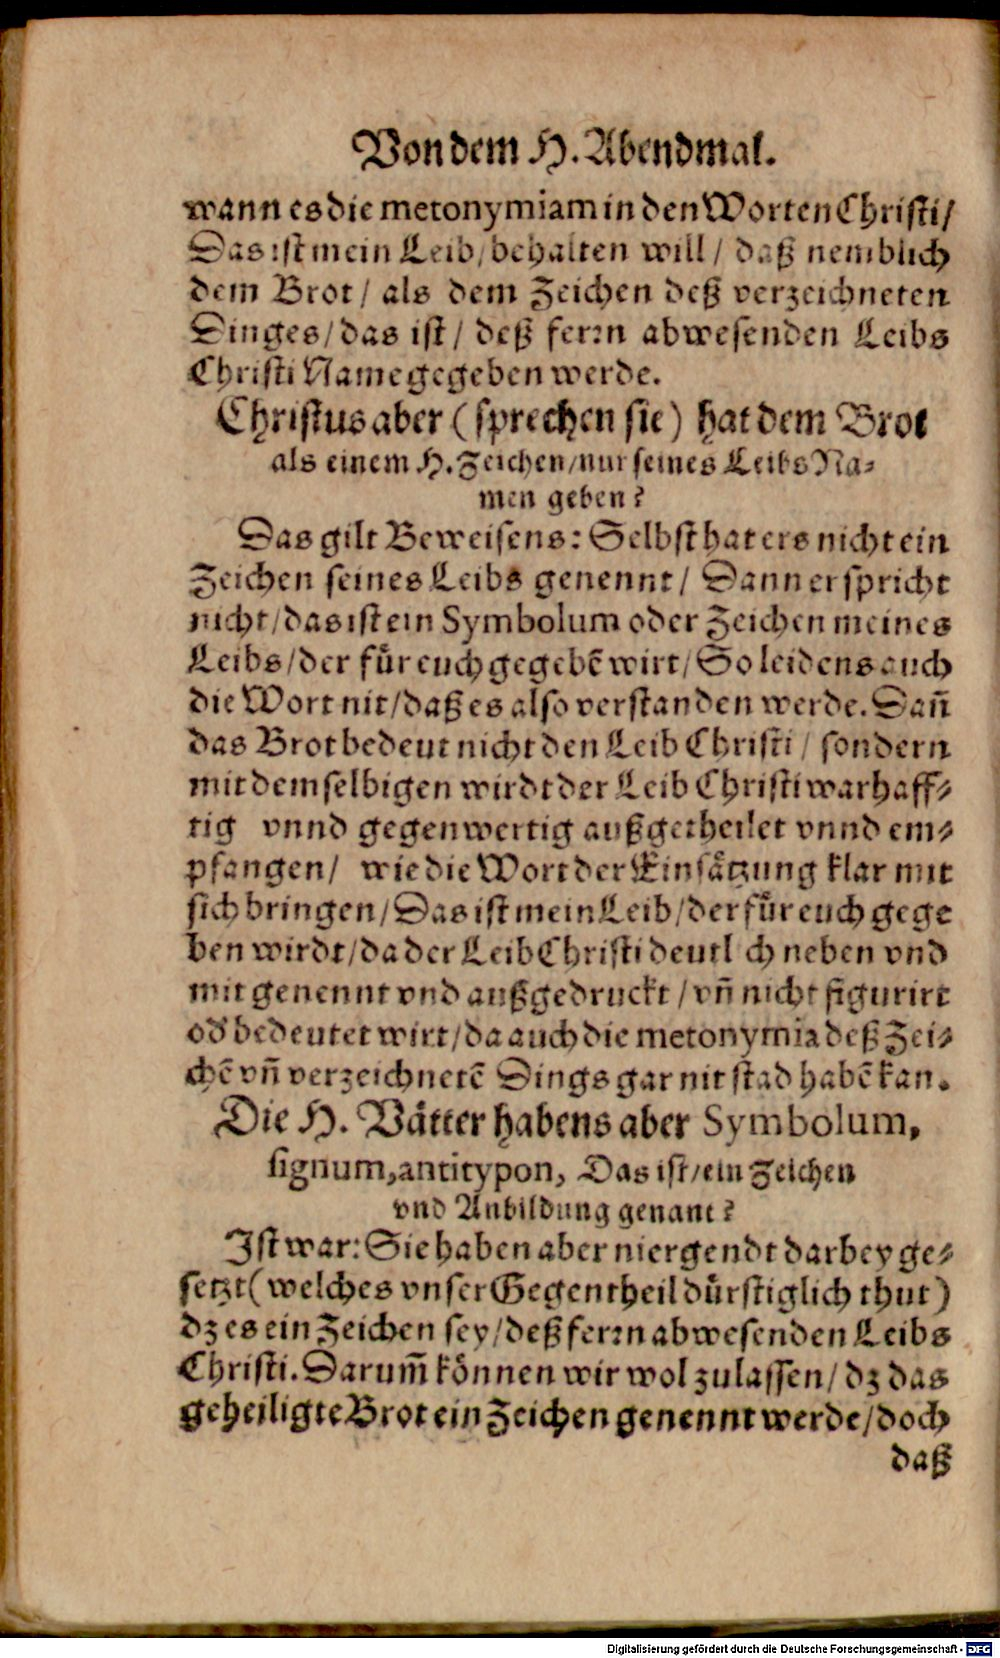 Von dem H. Abendmal.
wann es die metonymiam in den Worten Christi/
Das ist mein Leib/ behalten will / daß nemblich
dem Brot / als dem Zeichen deß verzeichneten
Dinges / das ist / deß ferrn abwesenden Leibs
Christi Name gegeben werde.
Christus aber ( sprechen sie ) hat dem Brot
als einem H. Zeichen/nur seines Leibs Na⸗
men geben?
Das gilt Beweisens: Selbst hat ers nicht ein
Zeichen seines Leibs genennt / Dann er spricht
nicht/das ist ein Symbolum oder Zeichen meines
Leibs/der für euch gegebẽ wirt/ So leidens auch
die Wort nit/daß es also verstanden werde. Dañ
das Brot bedeut nicht den Leib Christi / sondern
mit demselbigen wirdt der Leib Christi warhaff⸗
tig vnnd gegenwertig außgetheilet vnnd em⸗
pfangen / wie die Wort der Einsätzung klar mit
sich bringen/Das ist mein Leib/der für euch gege
ben wirdt/da der Leib Christi deutl ch neben vnd
mit genennt vnd außgedruckt / vñ nicht figurirt
od' bedeutet wirt/da auch die metonymia deß Zei⸗
chẽ vñ verzeichnetẽ Dings gar nit stad habẽ kan.
Die H. Vätter habens aber Symbolum,
signum, antitypon, Das ist/ein Zeichen
vnd Anbildung genant?
Ist war: Sie haben aber niergendt darbey ge⸗
setzt ( welches vnser Gegentheil dürstiglich thut )
dz es ein Zeichen sey/deß ferrn abwesenden Leibs
Christi. Darum̃ können wir wol zulassen/ dz das
geheiligte Brot ein Zeichen genennt werde/doch
daß
Digitalisierung gefördert durch die Deutsche Forschungsgemeinschaft - DFG